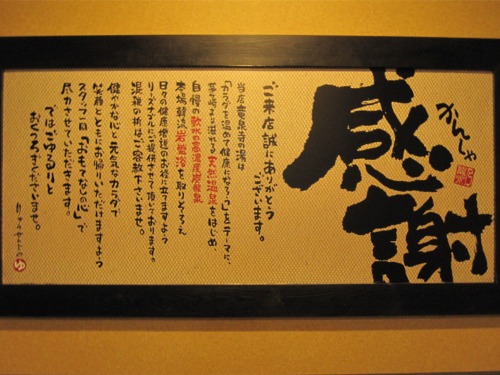 感謝
かんしゃ
ご来店誠にありがとう
ございます。
当店竜泉寺の湯は
「カラダを温めて健康になろう」をテーマに、
茅ヶ崎より溢れる天然温泉をはじめ、
自慢の軟水の高濃度炭酸泉
本場韓流岩盤浴を取りそろえ
日々の健康増進のお役に立てますよう
リーズナブルにご提供させて頂いております。
混雑の折はご容赦下さいませ。
健やかな心と元気なカラダで
笑顔とともにお帰りいただけますよう
スタッフ一同「おもてなしの心」で
尽力させていただきます。
ではごゆるりと
おくつろぎくださいませ。
りゅうせんじの
ゆ